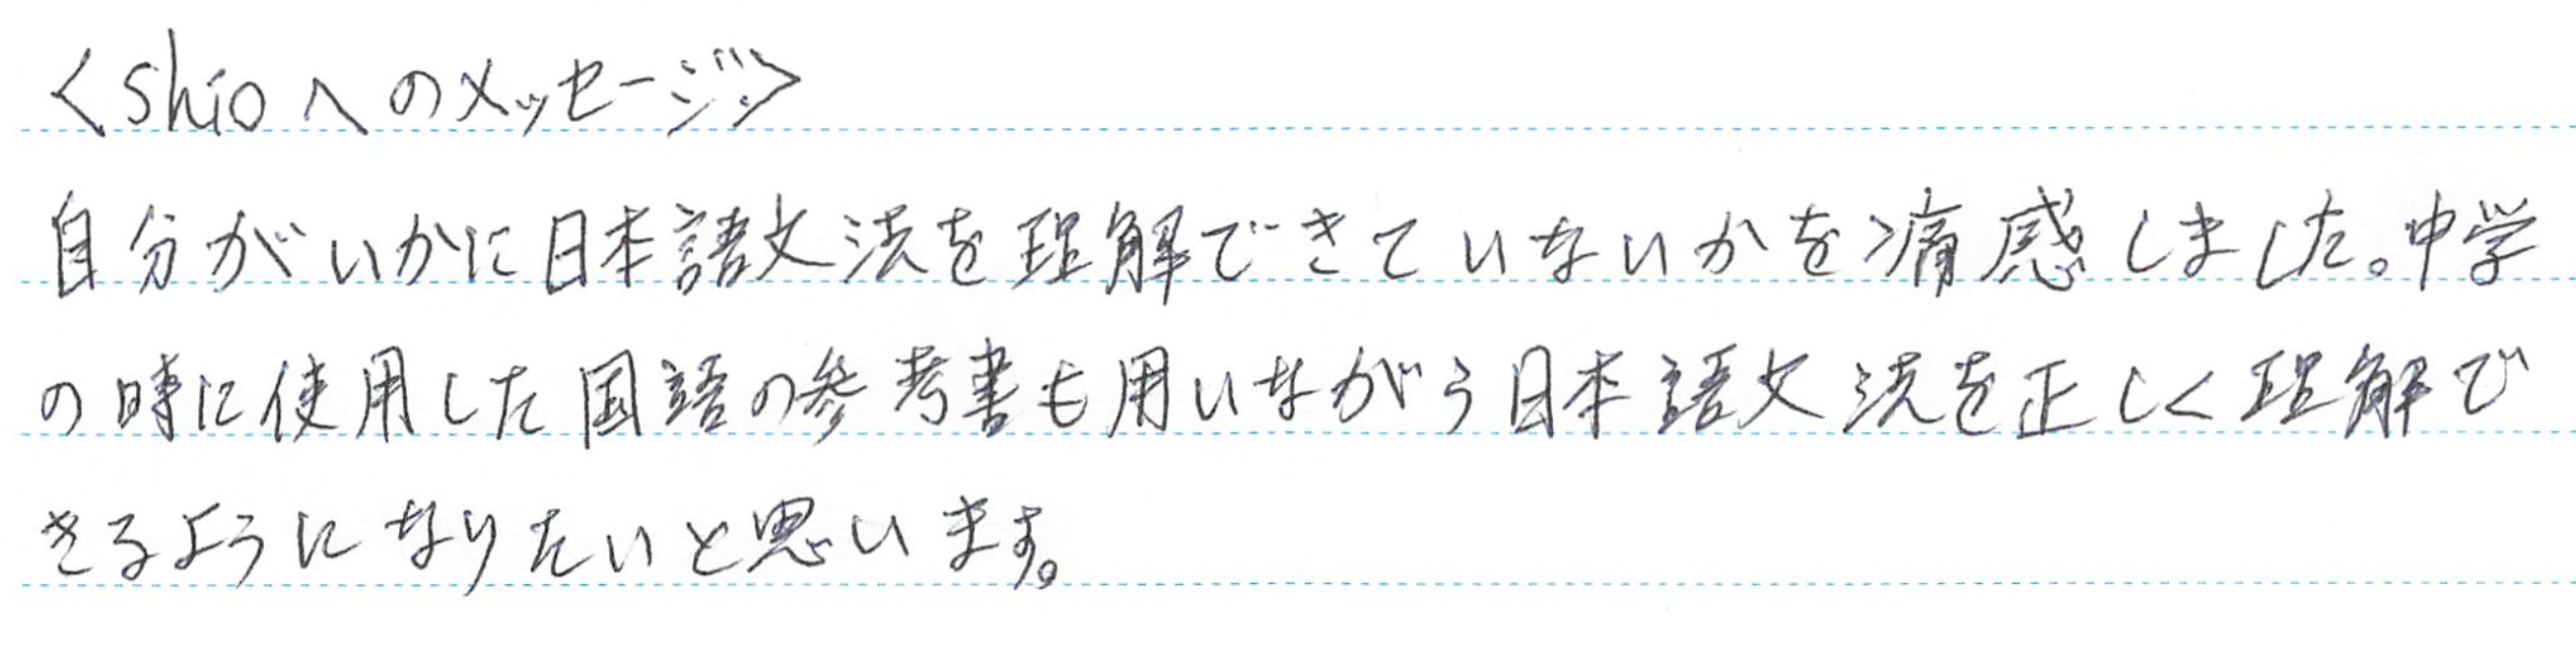 <shioへのメッセージ>
自分がいかに日本語文法を理解できていないかを痛感しました。中学
の時に使用した国語の参考書も用いながら日本語文法を正しく理解で
きるようになりたいと思います。